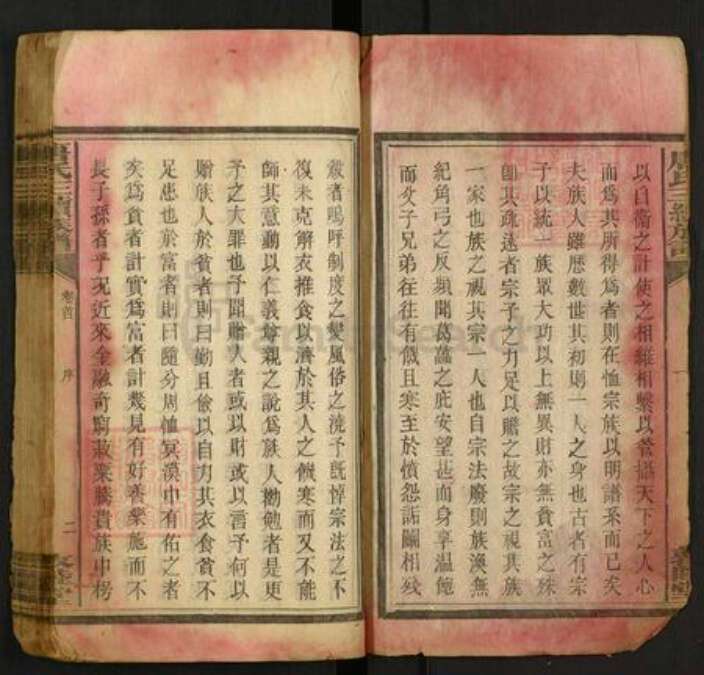 以自衛之計使之相維相繫以管攝天下之人心
而為其所得為者則在恤宗族以明譜系而已矣
夫族人雖歷數世其初則一人之身也古者有宗
子以統一族眾大功以上無異財亦無貧富之殊
即其疏遠者宗子之力足以贍之故宗之視其族
一家也族之視其宗一人也自宗法廢則族渙無
紀角弓之反頻聞葛藟之庇安望甚而身享溫飽
而父子兄弟往往有饑且寒至於憤怨詬鬭相殘
殺者嗚呼制度之變風俗之澆予既悼宗法之不
復未克解衣推食以濟於其人之饑寒而又不能
師其意動以仁義尊親之說為族人勸勉者是更
予之大罪也予聞贈人者或以財或以言予何以
贈族人於貧者則曰勤且儉以自力其衣食貧不
足患也於富者則曰隨分周恤冥漠中有佑之者
矣為貧者計實為富者計幾見有好善樂施而不
長子孫者乎況近來金融奇窮菽粟騰貴族中榜
卷首
序
二